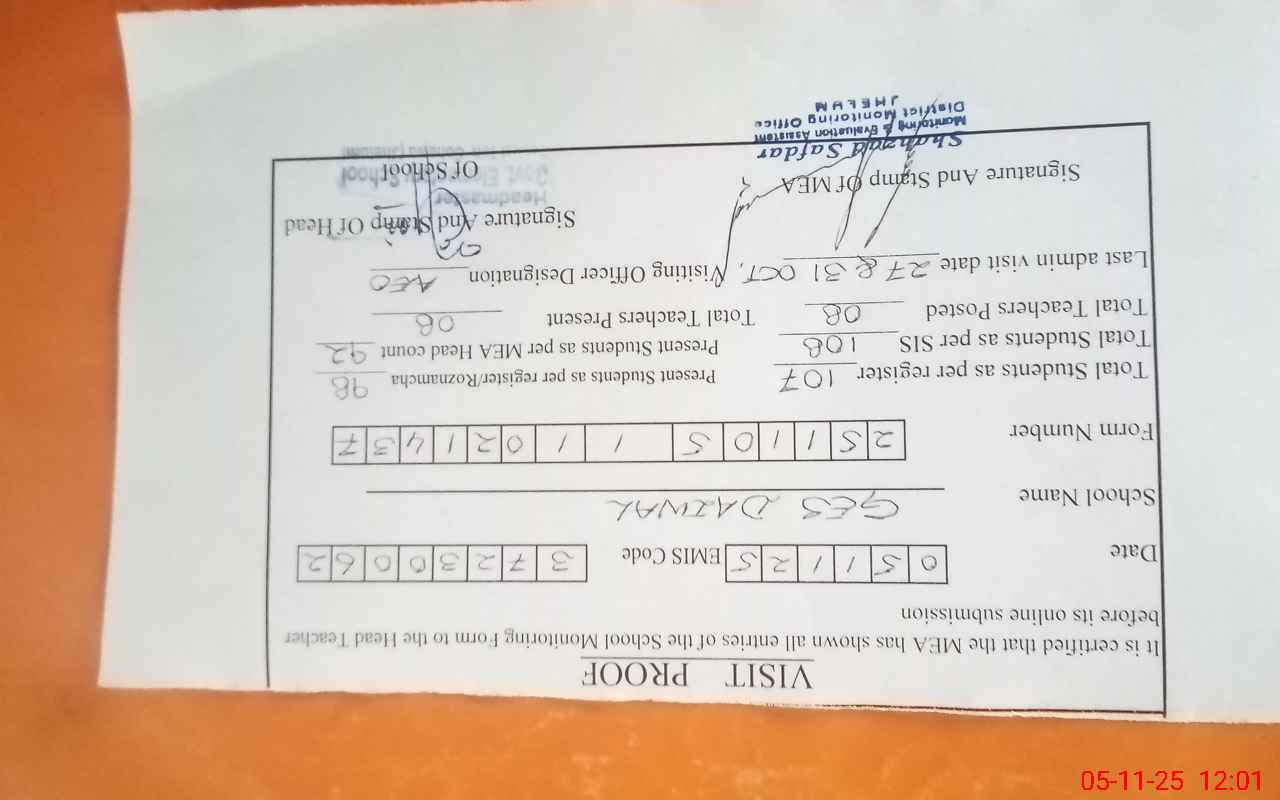 VISIT PROOF
It is certified that the MEA has shown all entries of the School Monitoring Form to the Head Teacher
before its online submission
Date 0 5 1 1 2 5 EMIS Code 3 7 2 3 0 0 6 2
School Name GES DAIWAL
Form Number 2 5 1 1 0 5 1 1 0 2 1 4 3 7
Total Students as per register 107 Present Students as per register/Roznamcha 98
Total Students as per SIS 108 Present Students as per MEA Head count 92
Total Teachers Posted 08 Total Teachers Present 08
Last admin visit date 27 & 31 OCT, Visiting Officer Designation AEO
Signature And Stamp Of MEA Signature And Stamp Of Head
Of School
Headmaster
Govt. Elementary School
Shahzad Safdar
Monitoring & Evaluation Assistant
District Monitoring Office
JHELUM
05-11-25 12:01